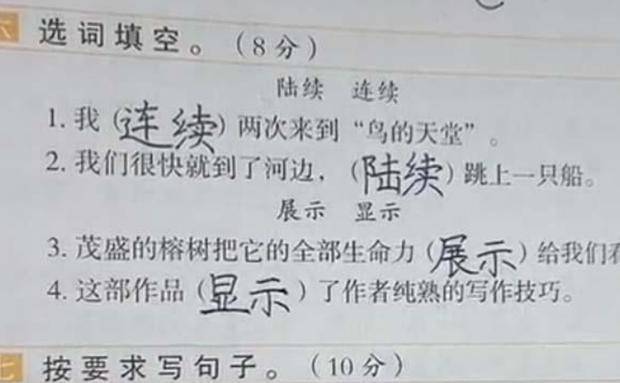 六 选词填空。（8分）
陆续 连续
1. 我（连续）两次来到“鸟的天堂”。
2. 我们很快就到了河边，（陆续）跳上一只船。
展示 显示
3. 茂盛的榕树把它的全部生命力（展示）给我们看
4. 这部作品（显示）了作者纯熟的写作技巧。
七 按要求写句子。（10分）